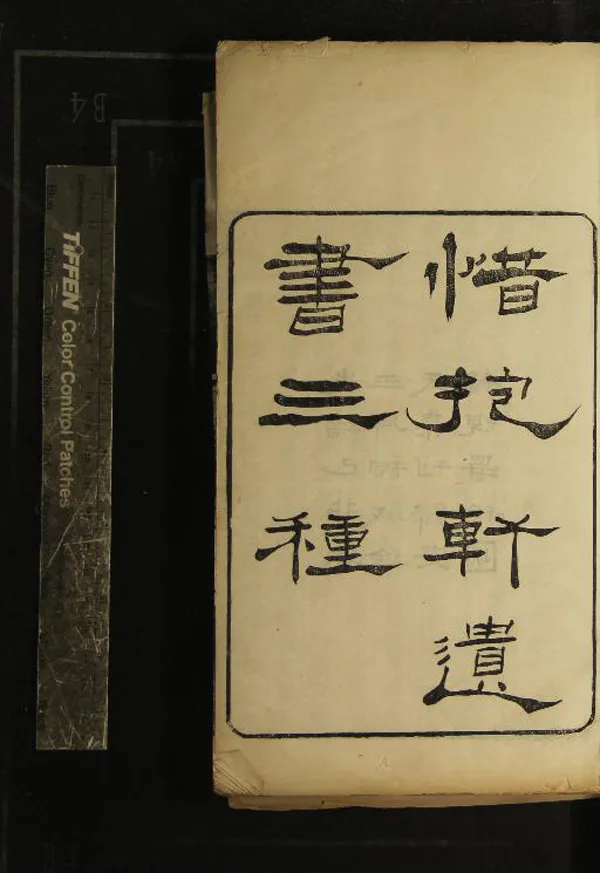 惜抱軒遺
書三種
TIFFEN Color Control Patches
B4